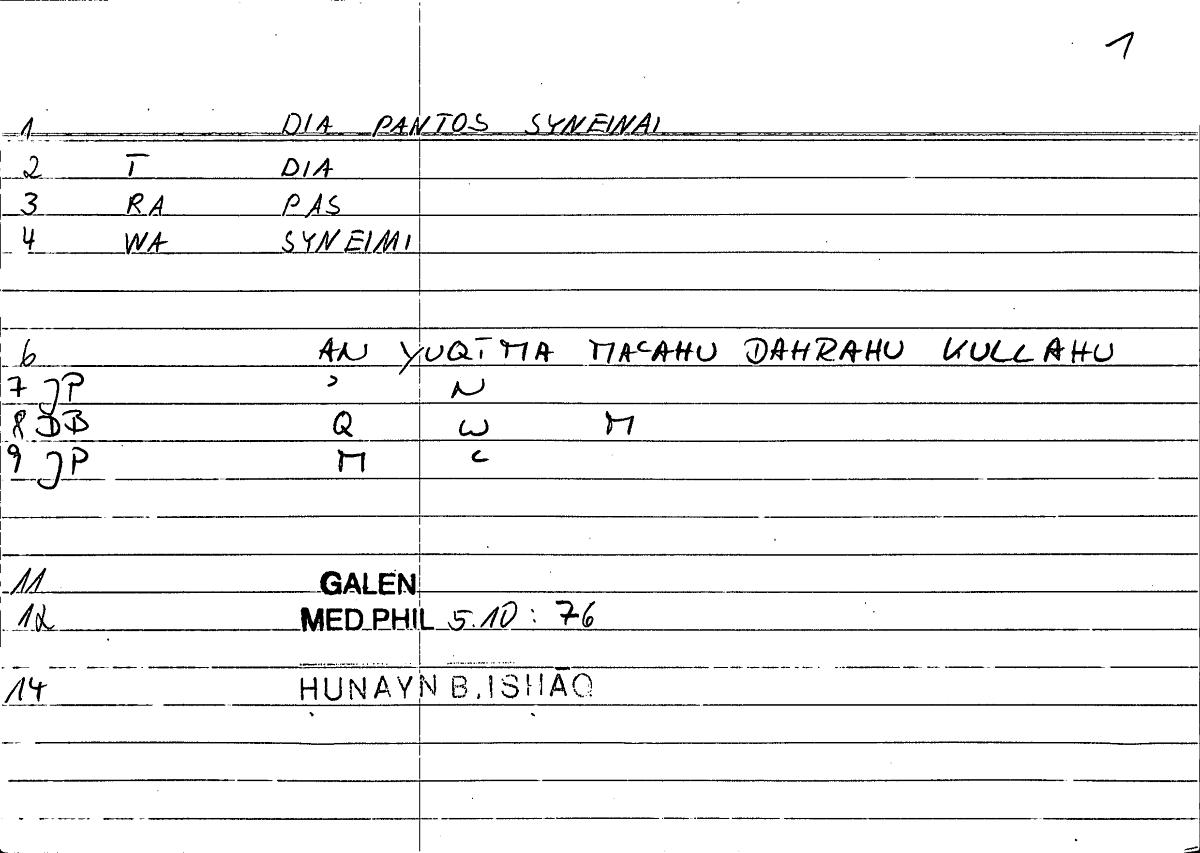 1
1 DIA PANTOS SYNEINAI
2 T DIA
3 RA PAS
4 WA SYNEIMI
6 AN YUQĪMA MAʿAHU DAHRAHU KULLAHU
7 JP ʾ N
8 DB Q W M
9 JP M ʿ
11 GALEN
12 MED PHIL 5.10 : 76
14 ḤUNAYN B. ISḤĀQ